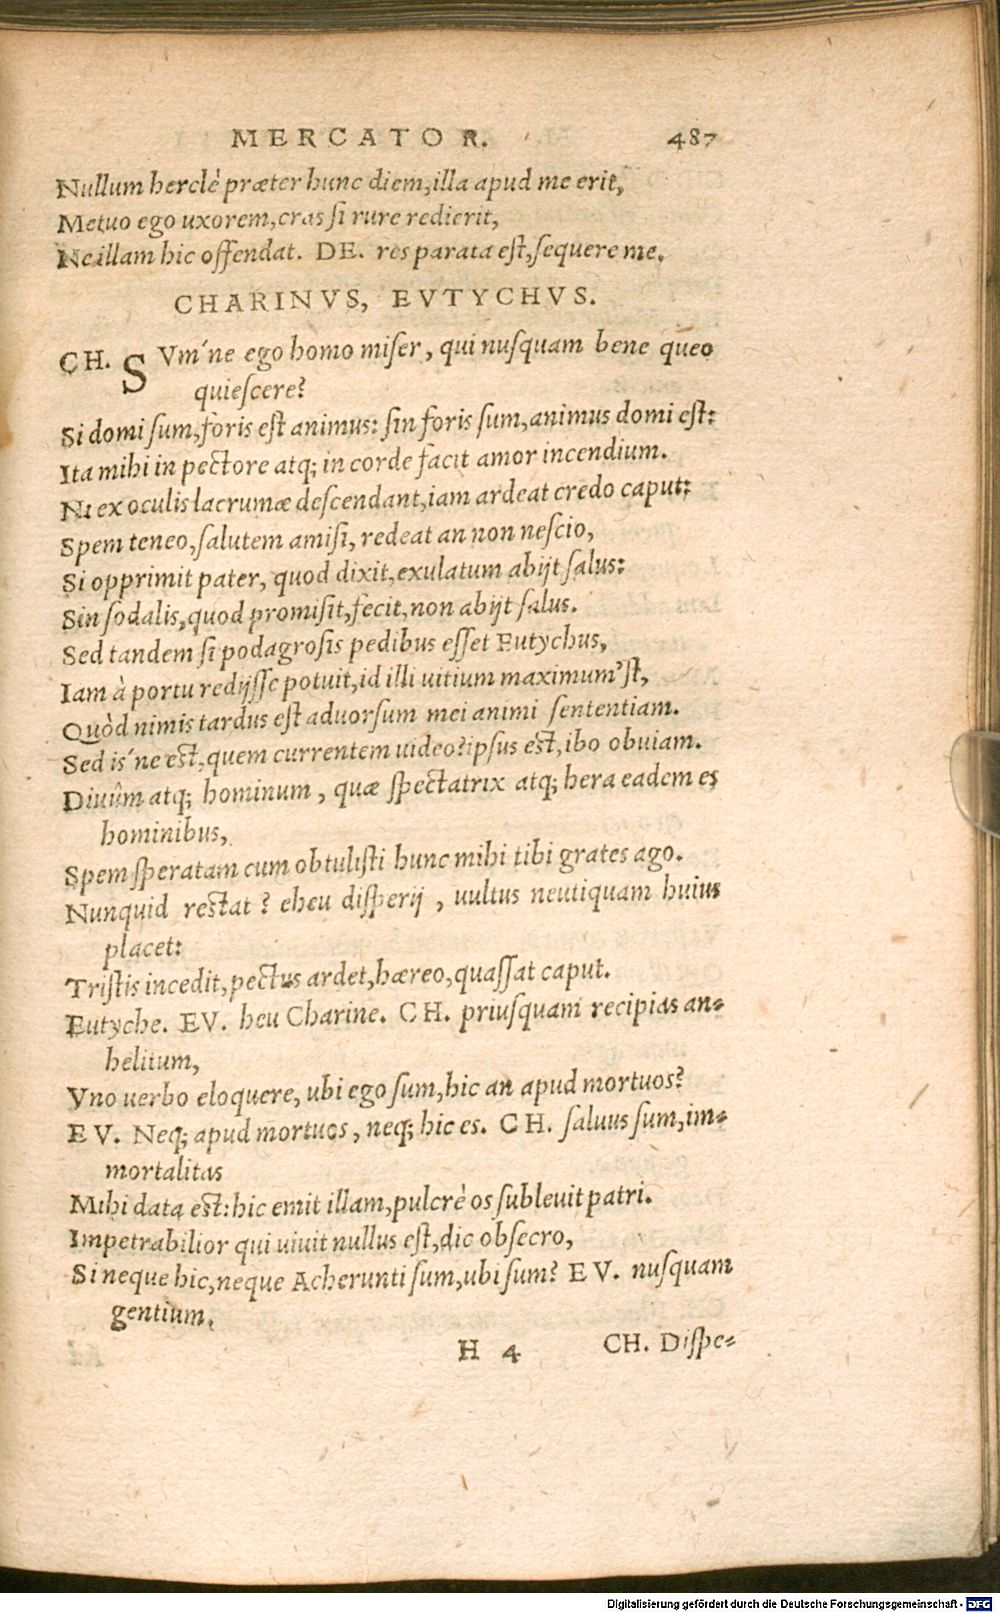 MERCATOR. 487
Nullum herclè præter hunc diem,illa apud me erit,
Metuo ego uxorem,cras si rure redierit,
Ne illam hic offendat. DE. res parata est,sequere me.
CHARINVS, EVTYCHVS.
CH. SVm´ne ego homo miser, qui nusquam bene queo
quiescere?
Si domi sum,foris est animus: sin foris sum,animus domi est:
Ita mihi in pectore atq; in corde facit amor incendium.
Ni ex oculis lacrumæ descendant,iam ardeat credo caput:
Spem teneo,salutem amisi, redeat an non nescio,
Si opprimit pater, quod dixit,exulatum abijt salus:
Sin sodalis,quod promisit,fecit,non abijt salus.
Sed tandem si podagrosis pedibus esset Eutychus,
Iam à portu redijsse potuit,id illi uitium maximum’st,
Quòd nimis tardus est aduorsum mei animi sententiam.
Sed is´ne est,quem currentem uideo?ipsus est,ibo obuiam.
Diuûm atq; hominum, quæ spectatrix atq; hera eadem es
hominibus,
Spem speratam cum obtulisti hunc mihi tibi grates ago.
Nunquid restat? eheu disperij, uultus neutiquam huius
placet:
Tristis incedit,pectus ardet,hæreo,quassat caput.
Eutyche. EV. heu Charine. CH. priusquam recipias an-
helitum,
Vno uerbo eloquere, ubi ego sum,hic an apud mortuos?
EV. Neq; apud mortuos, neq; hic es. CH. saluus sum,im-
mortalitas
Mihi data est:hic emit illam,pulcrè os subleuit patri.
Impetrabilior qui uiuit nullus est,dic obsecro,
Si neque hic,neque Acherunti sum,ubi sum? EV. nusquam
gentium.
H 4 CH. Dispe-
Digitalisierung gefördert durch die Deutsche Forschungsgemeinschaft - DFG